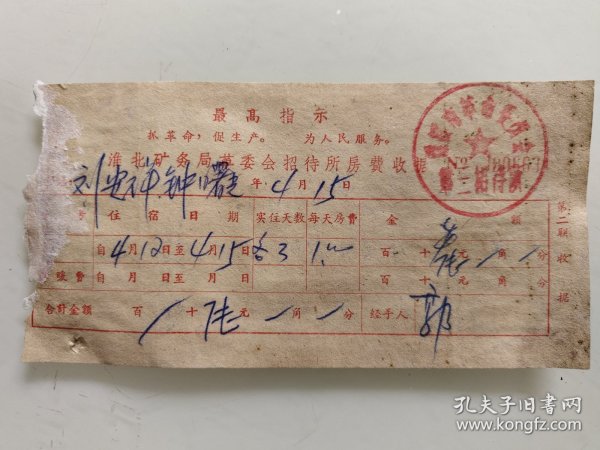 最高指示
抓革命，促生产。 为人民服务。
淮北矿务局革委会招待所房费收据 No
刘 钟 年 4 月 15 日
住宿日期 实住天数 每天房费 金额
自 4 月 12 日至 4 月 15 日 3 1.00 百 十 元 角 分
暖费 自 月 日至 月 日 百 十 元 角 分
合计金额 百 十 陆 元 角 分 经手人 郭
第二联 收据
孔夫子旧书网
www.kongfz.com